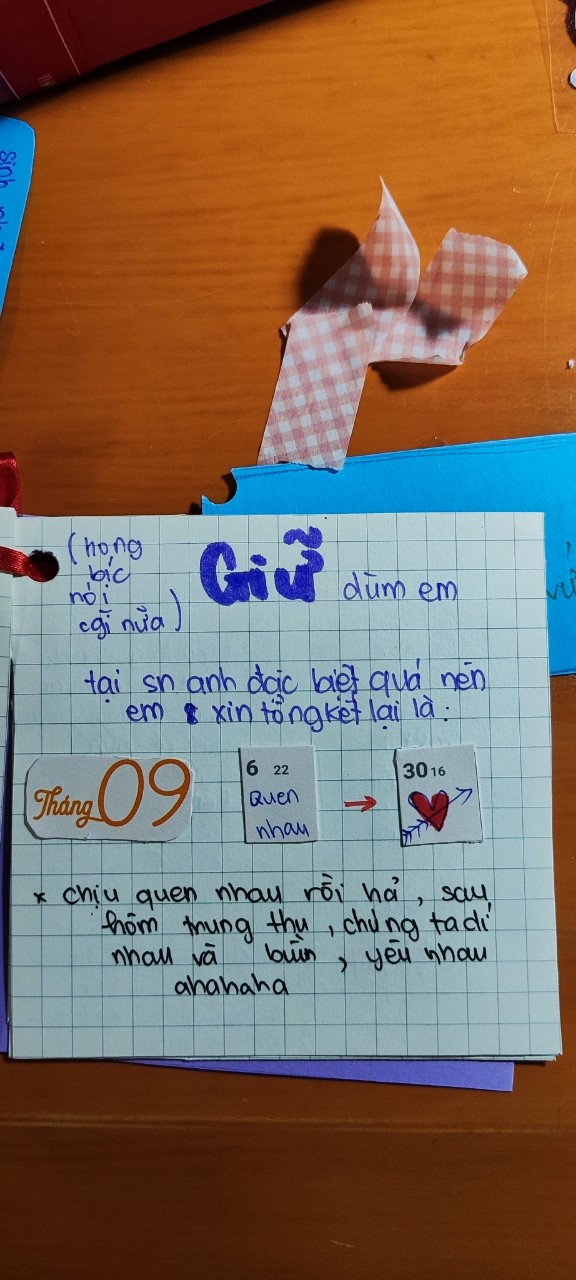 (hong
bíc
nói
cgì nữa)
Giữ dùm em
tại sn anh đặc biệt quá nên
em xin tổng kết lại là:
Tháng 09
6 22
Quen
nhau
30 16
* chịu quen nhau rồi hả, sau
hôm trung thu, chúng ta đi
nhau và bùm, yêu nhau
ahahaha
sinh